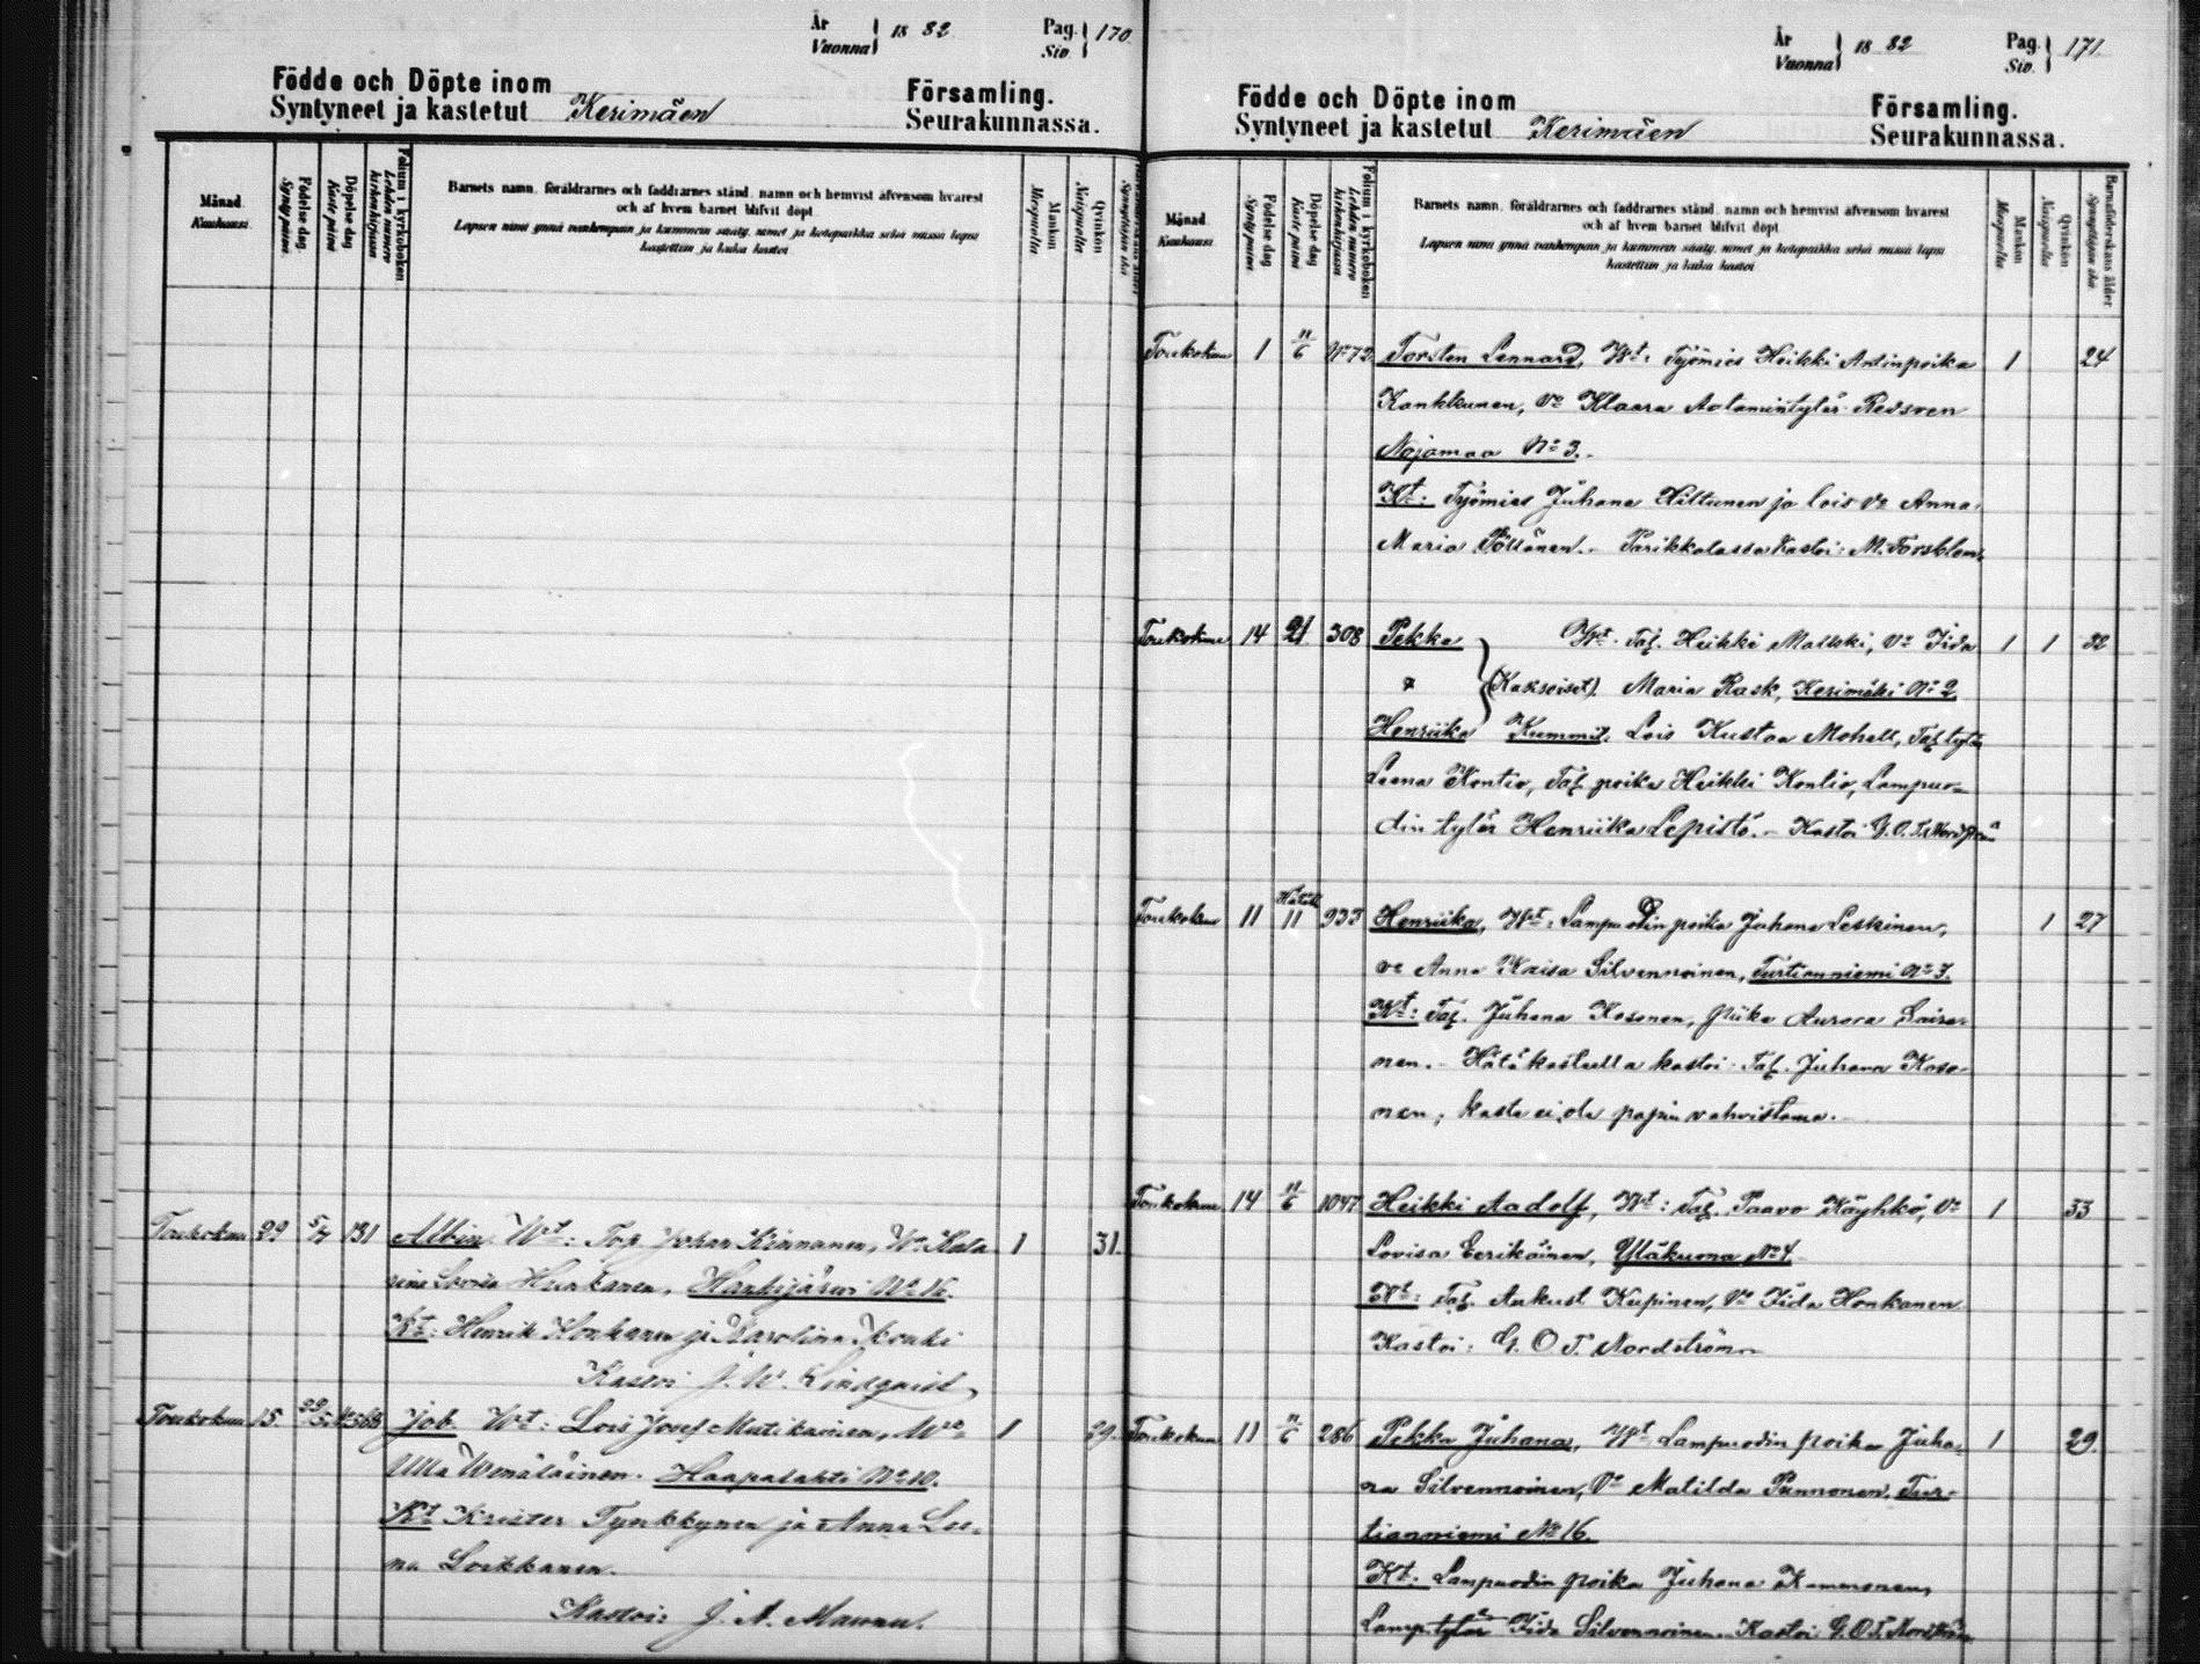 År Vuonna 1882 Pag. Siv. 170
Födde och Döpte inom Församling.
Syntyneet ja kastetut Kerimäen Seurakunnassa.
Månad Kuukausi
Födelse dag. Synty päivä
Döpelse dag Kaste päivä
Folium i kyrkoboken Lehden numero kirkonkirjassa
Barnets namn, föräldrarnes och faddrarnes stånd, namn och hemvist äfvensom hvarest
och af hvem barnet blifvit döpt
Lapsen nimi ynnä vanhempain ja kummein sääty, nimet ja kotopaikka sekä missä lapsi
kastettiin ja kuka kastoi
Mankön Miespuolia
Qvinkön Naispuolia
Toukokuu 29 5/7 131 Albin Wt: Johan Kinnunen, Wo Kata 1 31
rina Lovisa, Hankijärvi No 16.
Kt: Henrik Honkanen ja Karolina
Kastoi J. W. Lindqvist
Toukokuu 15. 29/5 568 Job Wt: Lois Josef Mutikainen, 1 29
Ulla Wenäläinen. Haapalahti No 10.
Kt Krister Tynkkynen ja Anna Lee-
na Loikkanen.
Kastoi: J. A. Mannu.
År Vuonna 1882 Pag. Siv. 171
Födde och Döpte inom Församling.
Syntyneet ja kastetut Kerimäen Seurakunnassa.
Månad Kuukausi
Födelse dag Synty päivä
Döpelse dag Kaste päivä
Folium i kyrkoboken Lehden numero kirkonkirjassa
Barnets namn, föräldrarnes och faddrarnes stånd, namn och hemvist äfvensom hvarest
och af hvem barnet blifvit döpt
Lapsen nimi ynnä vanhempain ja kummein sääty, nimet ja kotopaikka sekä missä lapsi
kastettiin ja kuka kastoi
Mankön Miespuolia
Qvinkön Naispuolia
Barnaföderskans ålder Synnyttäjän ikä
Toukokuu 1 11/6 No 72 Torsten Lennard, Wt: Työmies Heikki Antinpoika 1 24
Kankkunen, Vo Klaara Aatamintytär
Nojamaa No 3.
Kt: Työmies Juhana Hiltunen ja lois Vo Anna
Maria Pöllänen. Parikkalassa Kastoi: M. Forsblom
Toukokuu 14 21 308 Pekka Wt. Tal. Heikki Malkki, Vo Iida 1 1 32
(Kaksoiset) Maria Rask, Kerimäki No 2
Henriika Kummit. Lois Kustaa Mohell, Tal. tytär
Leena Kontio, Tal. poika Heikki Kontio, Lampuo-
din tytär Henriika Lepistö. - Kastoi G. O. T. Nordström
Toukokuu 11 Hätäk 11 933 Henriika, Wt: Lampuodin poika Juhana Leskinen, 1 27
vo Anna Kaisa Silvennoinen, Turtianniemi No 3.
Kt: Tal. Juhana Kosonen, piika Aurora Saira-
nen. - Hätäkasteella kastoi Tal. Juhana Koso-
nen; kaste ei ole papin vahvistama.
Toukokuu 14 11/6 1047 Heikki Aadolf, Wt: Tal. Paavo Käyhkö, Vo 1 33
Lovisa Eerikäinen, Yläkuona No 4.
Kt: Tal. Aukust Kupinen, Vo Iida Honkanen
Kastoi: G. O. T. Nordström
Toukokuu 11 11/6 286 Pekka Juhana, Wt Lampuodin poika Juha- 1 29
na Silvennoinen, Vo Matilda Punnonen, Tur-
tianniemi No 16.
Kt: Lampuodin poika Juhana Kammonen,
Lamp. tytär Iida Silvennoinen. Kastoi G. O. T. Nordström